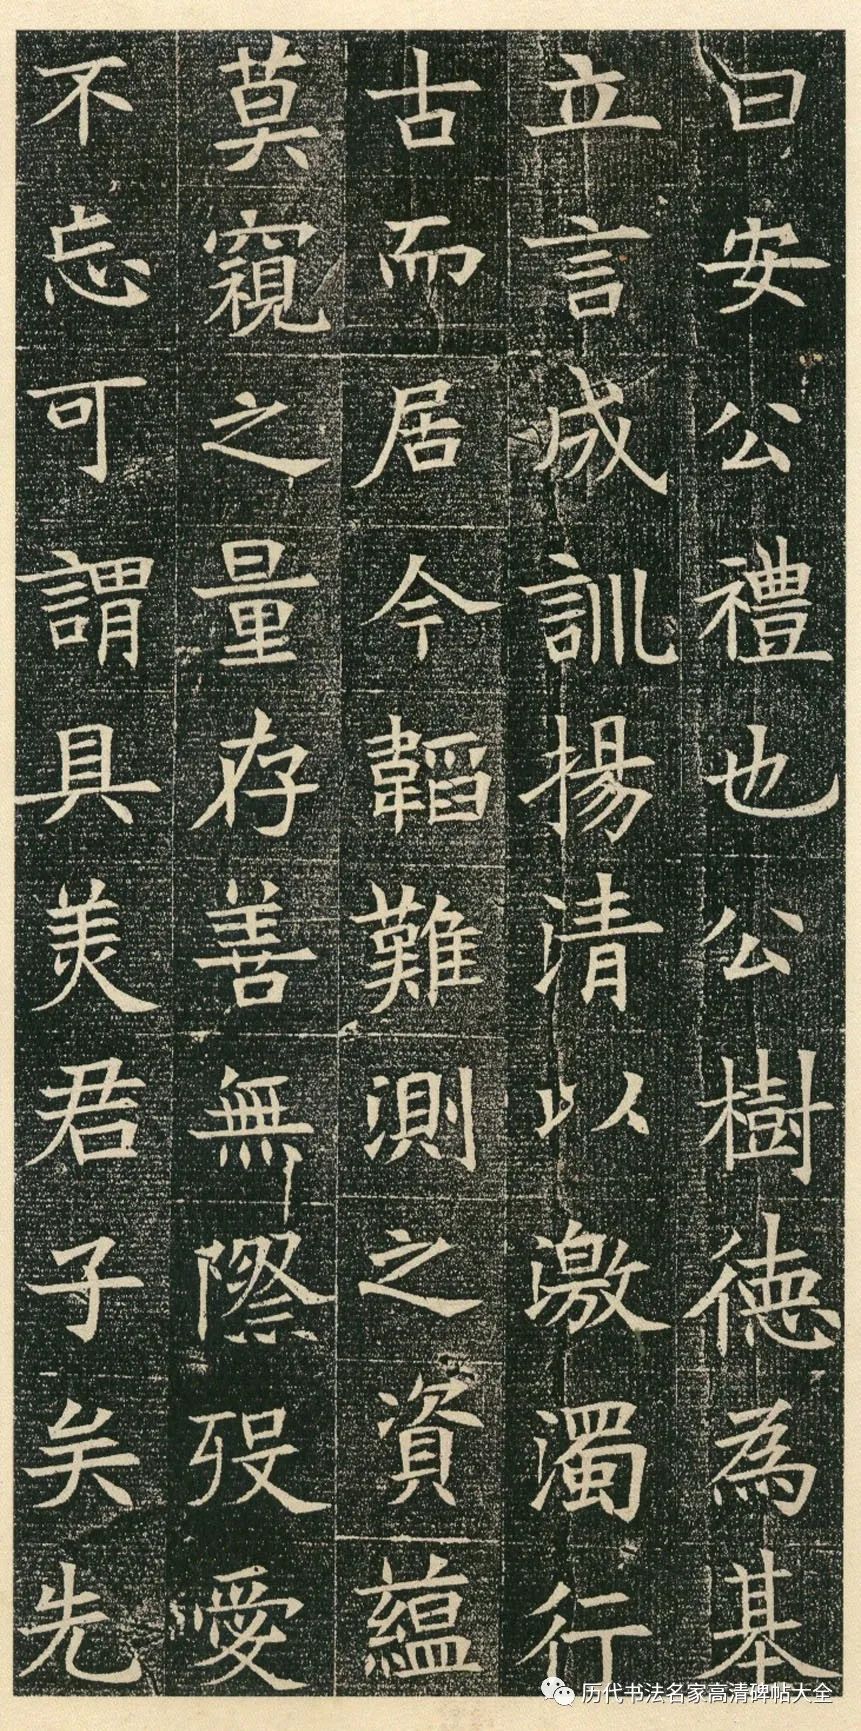 曰安公禮也公樹德為基
立言成訓揚清以激濁行
古而居今韜難測之資蘊
莫窺之量存善無際歿愛
不忘可謂具美君子矣先
历代书法名家高清碑帖大全